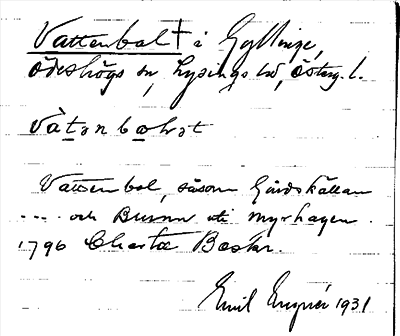 Vattenbol † i Gyllinge,
Ödeshögs sn, Lysings hd, Östergl.
Vattenbol, såsom Gårdskällan
... och Bunn uti myrhagen.
1796 Charta Beskr.
Emil Engnér 1931